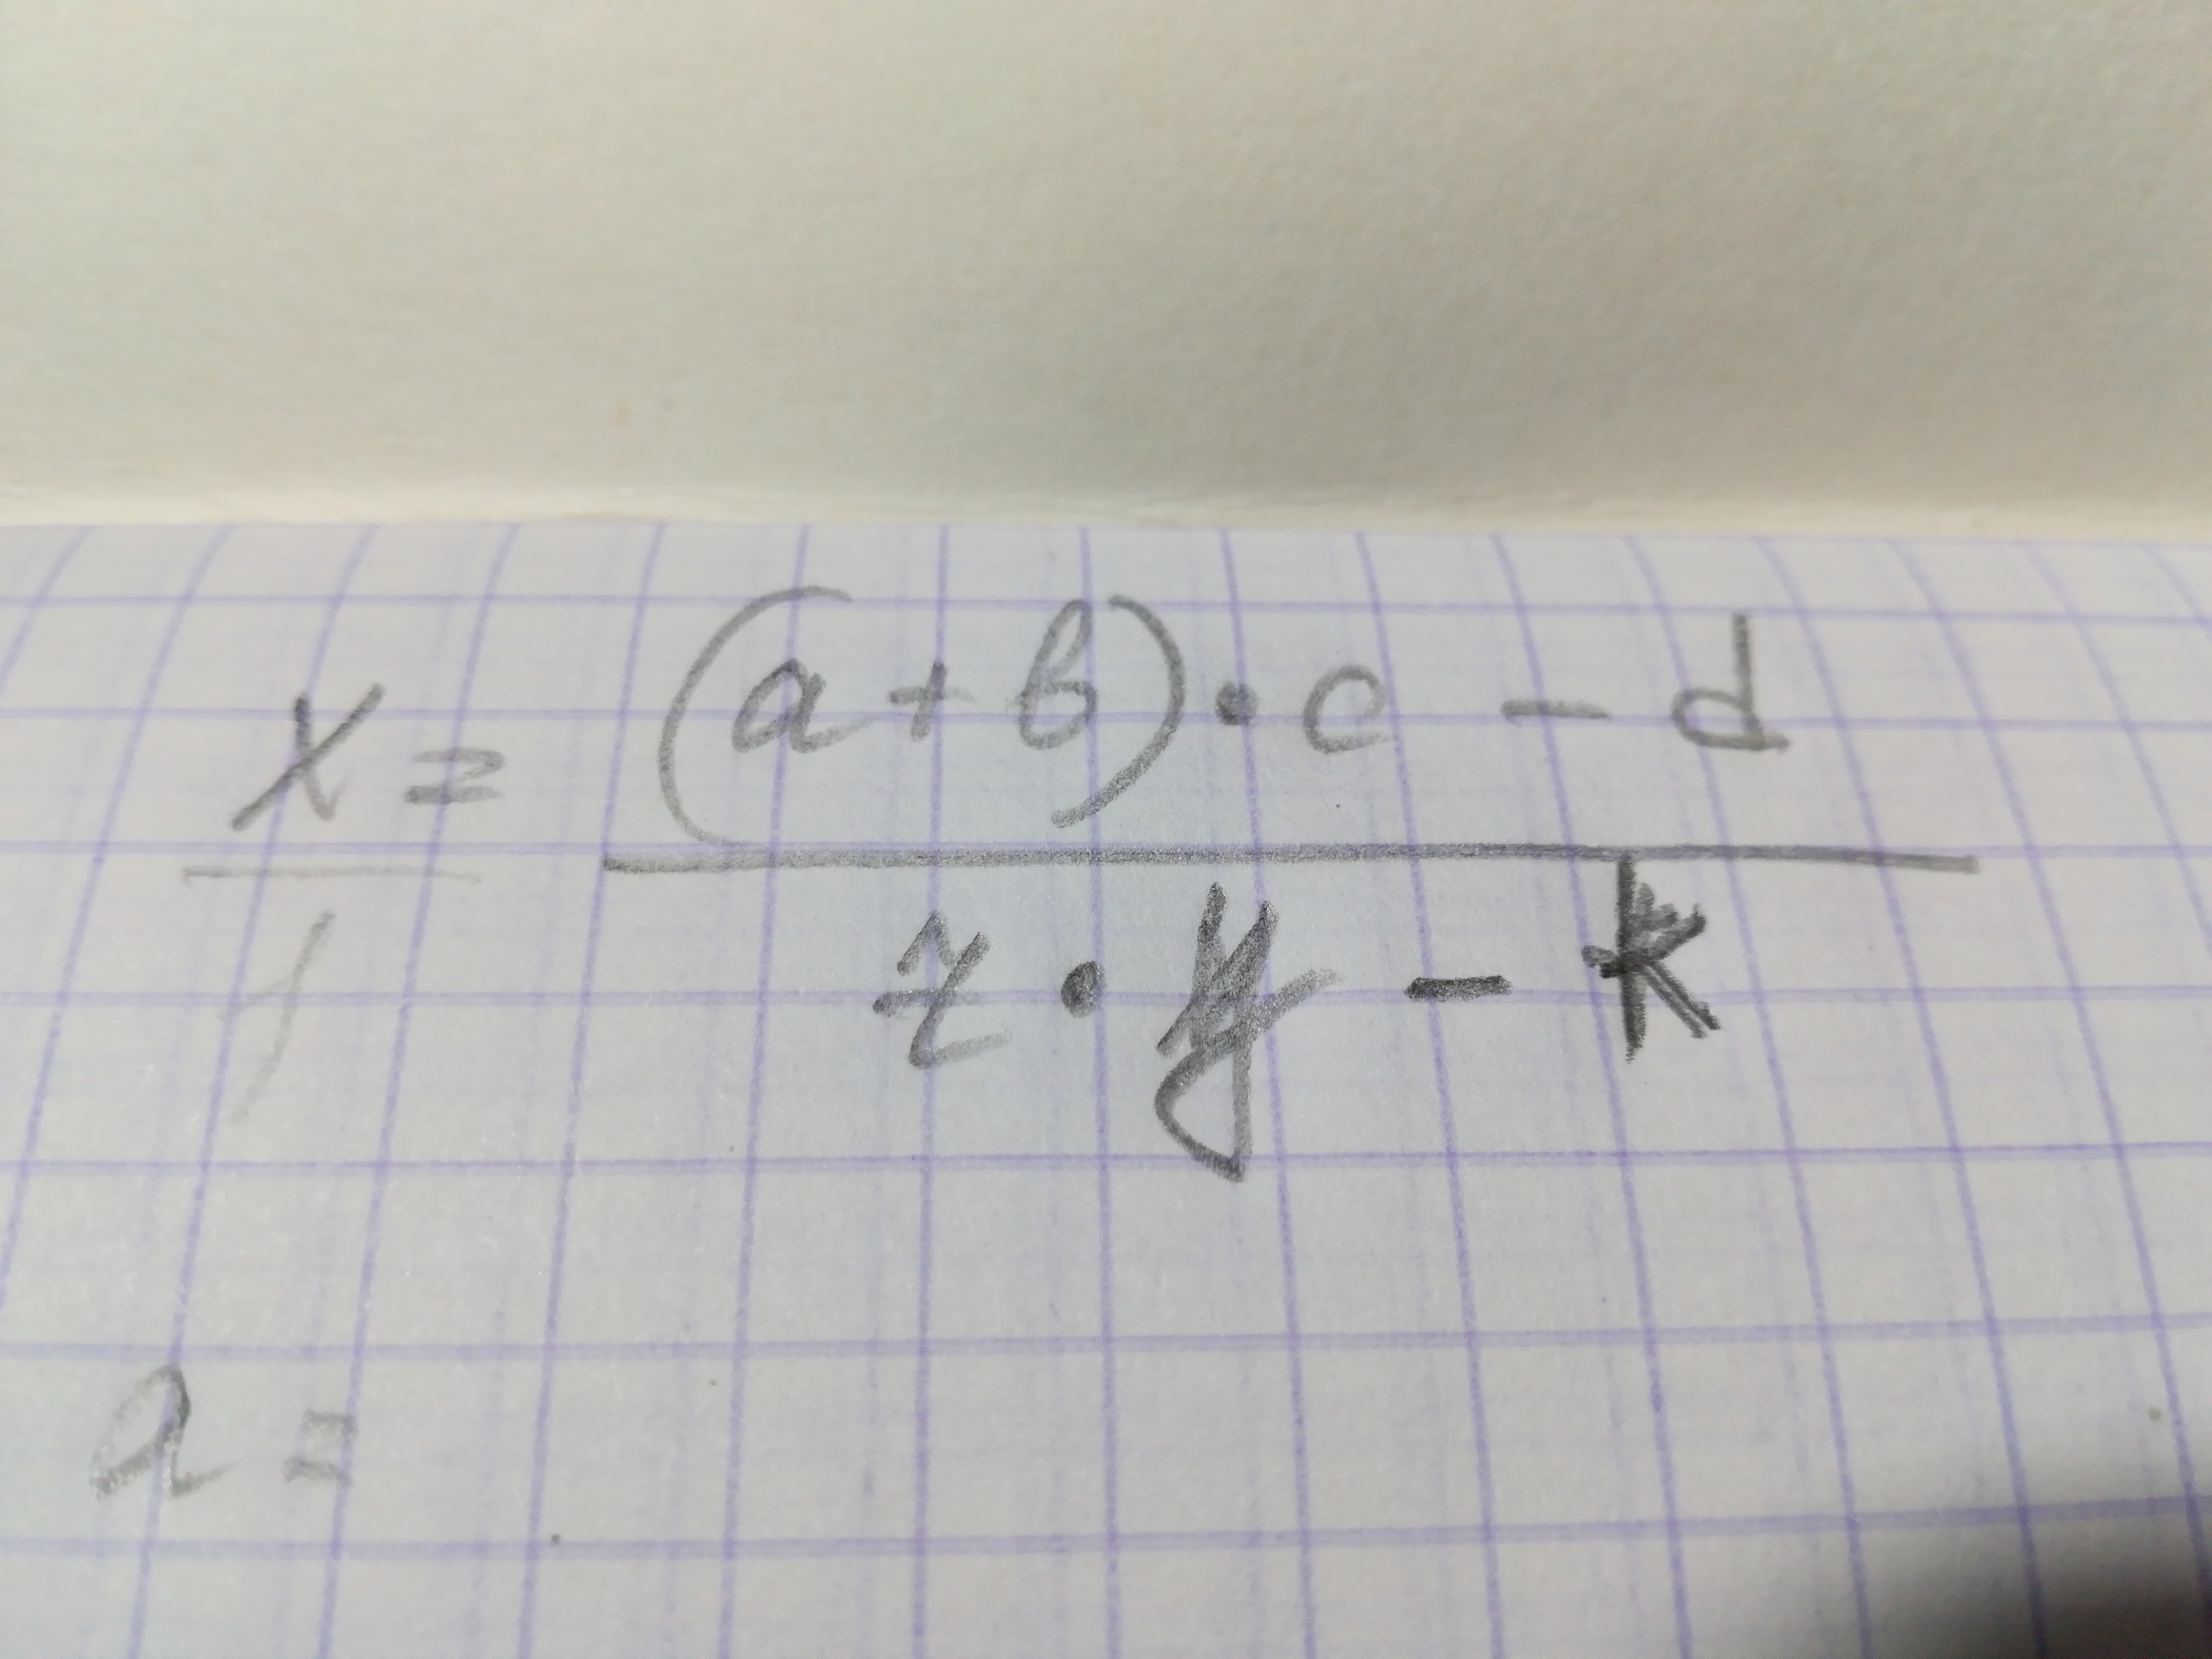 x = (a + b) • c - d
1 z • y - k
a =